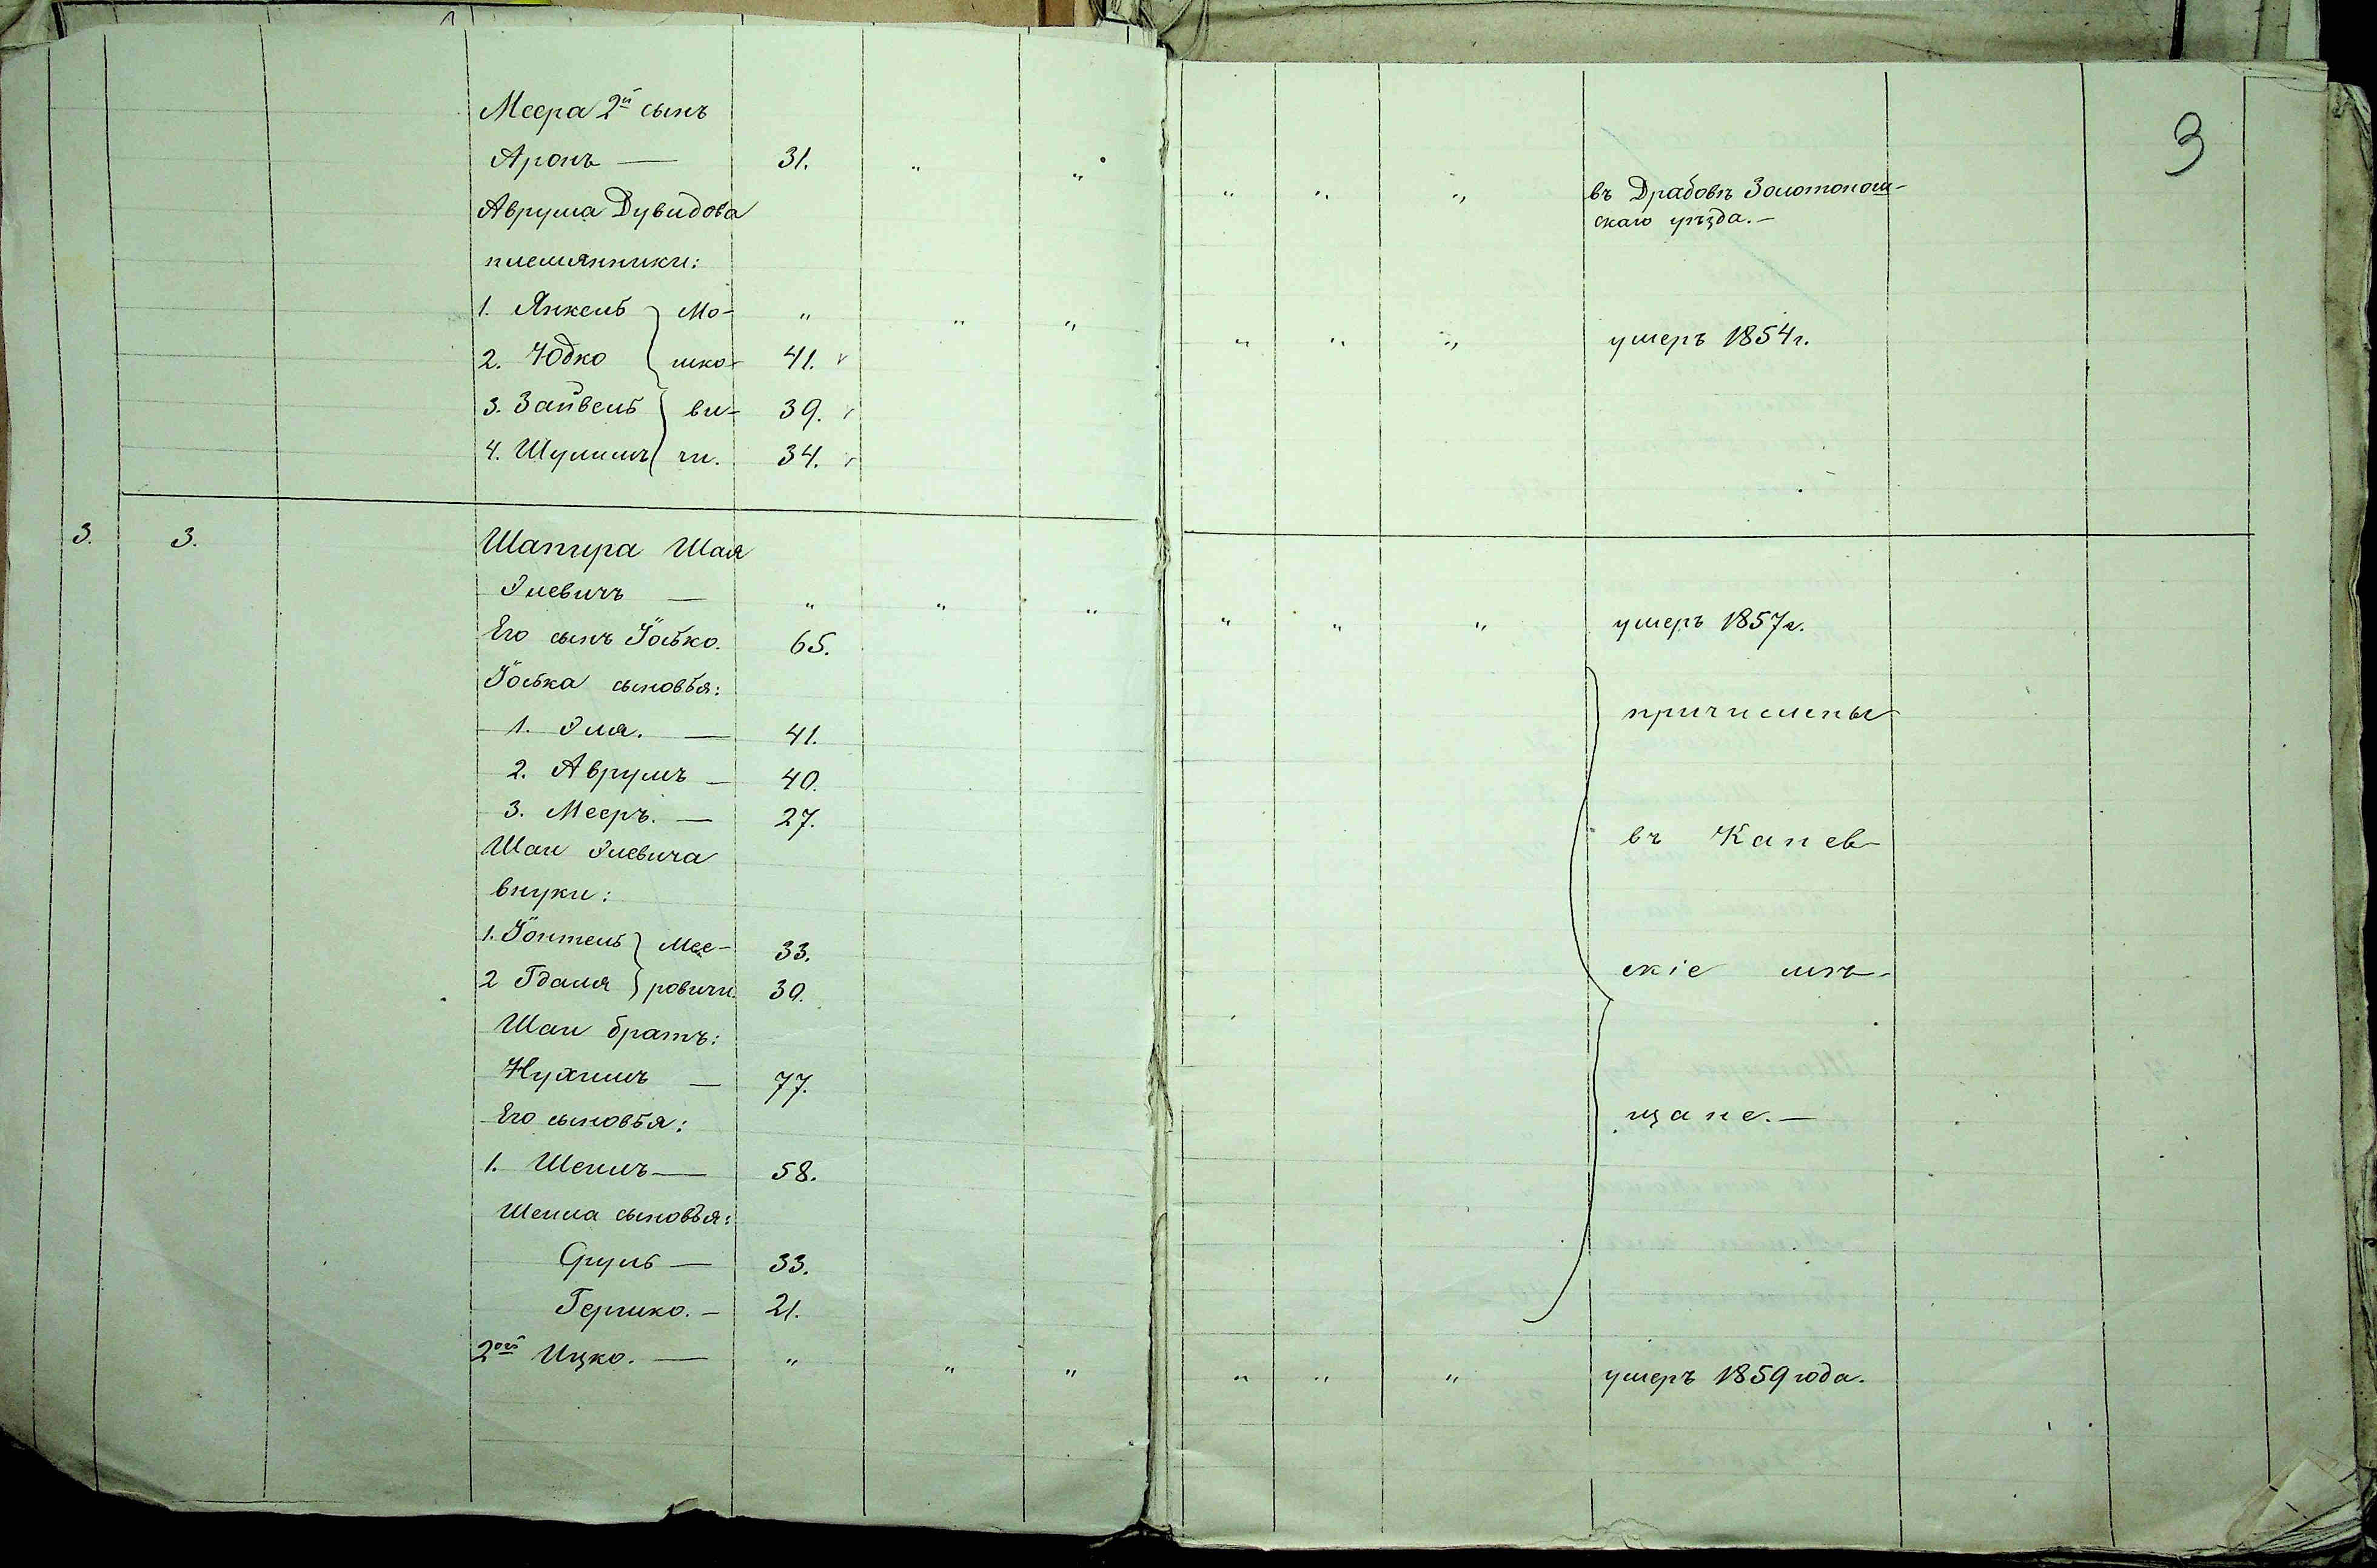 Меера 2й сынъ
Аронъ — 31. " "
Аврума Дувидова
племянники:
1. Янкель Мо- " " "
2. Юдко шко- 41.
3. Зайвель ви- 39.
4. Шулимъ чи. 34.
3. 3. Шапира Шая
Элевичъ — " " "
Его сынъ Іосько. 65.
Іоська сыновья:
1. Эля. — 41.
2. Аврумъ — 40.
3. Мееръ. — 27.
Шаи Элевича
внуки:
1. Іонтель Мее- 33.
2 Гдаля ровичи. 30.
Шаи братъ:
Нухимъ — 77.
Его сыновья:
1. Шепшъ — 58.
сыновья:
Сруль — 33.
Гершко. — 21.
2ой Ицко. — " " "
3
" " " въ Драбовѣ Золотонош-
скаго уѣзда. —
" " " умеръ 1854 г.
" " " умеръ 1857 г.
причислены
въ Канев-
скіе мѣ-
щане. —
" " " умеръ 1859 года.